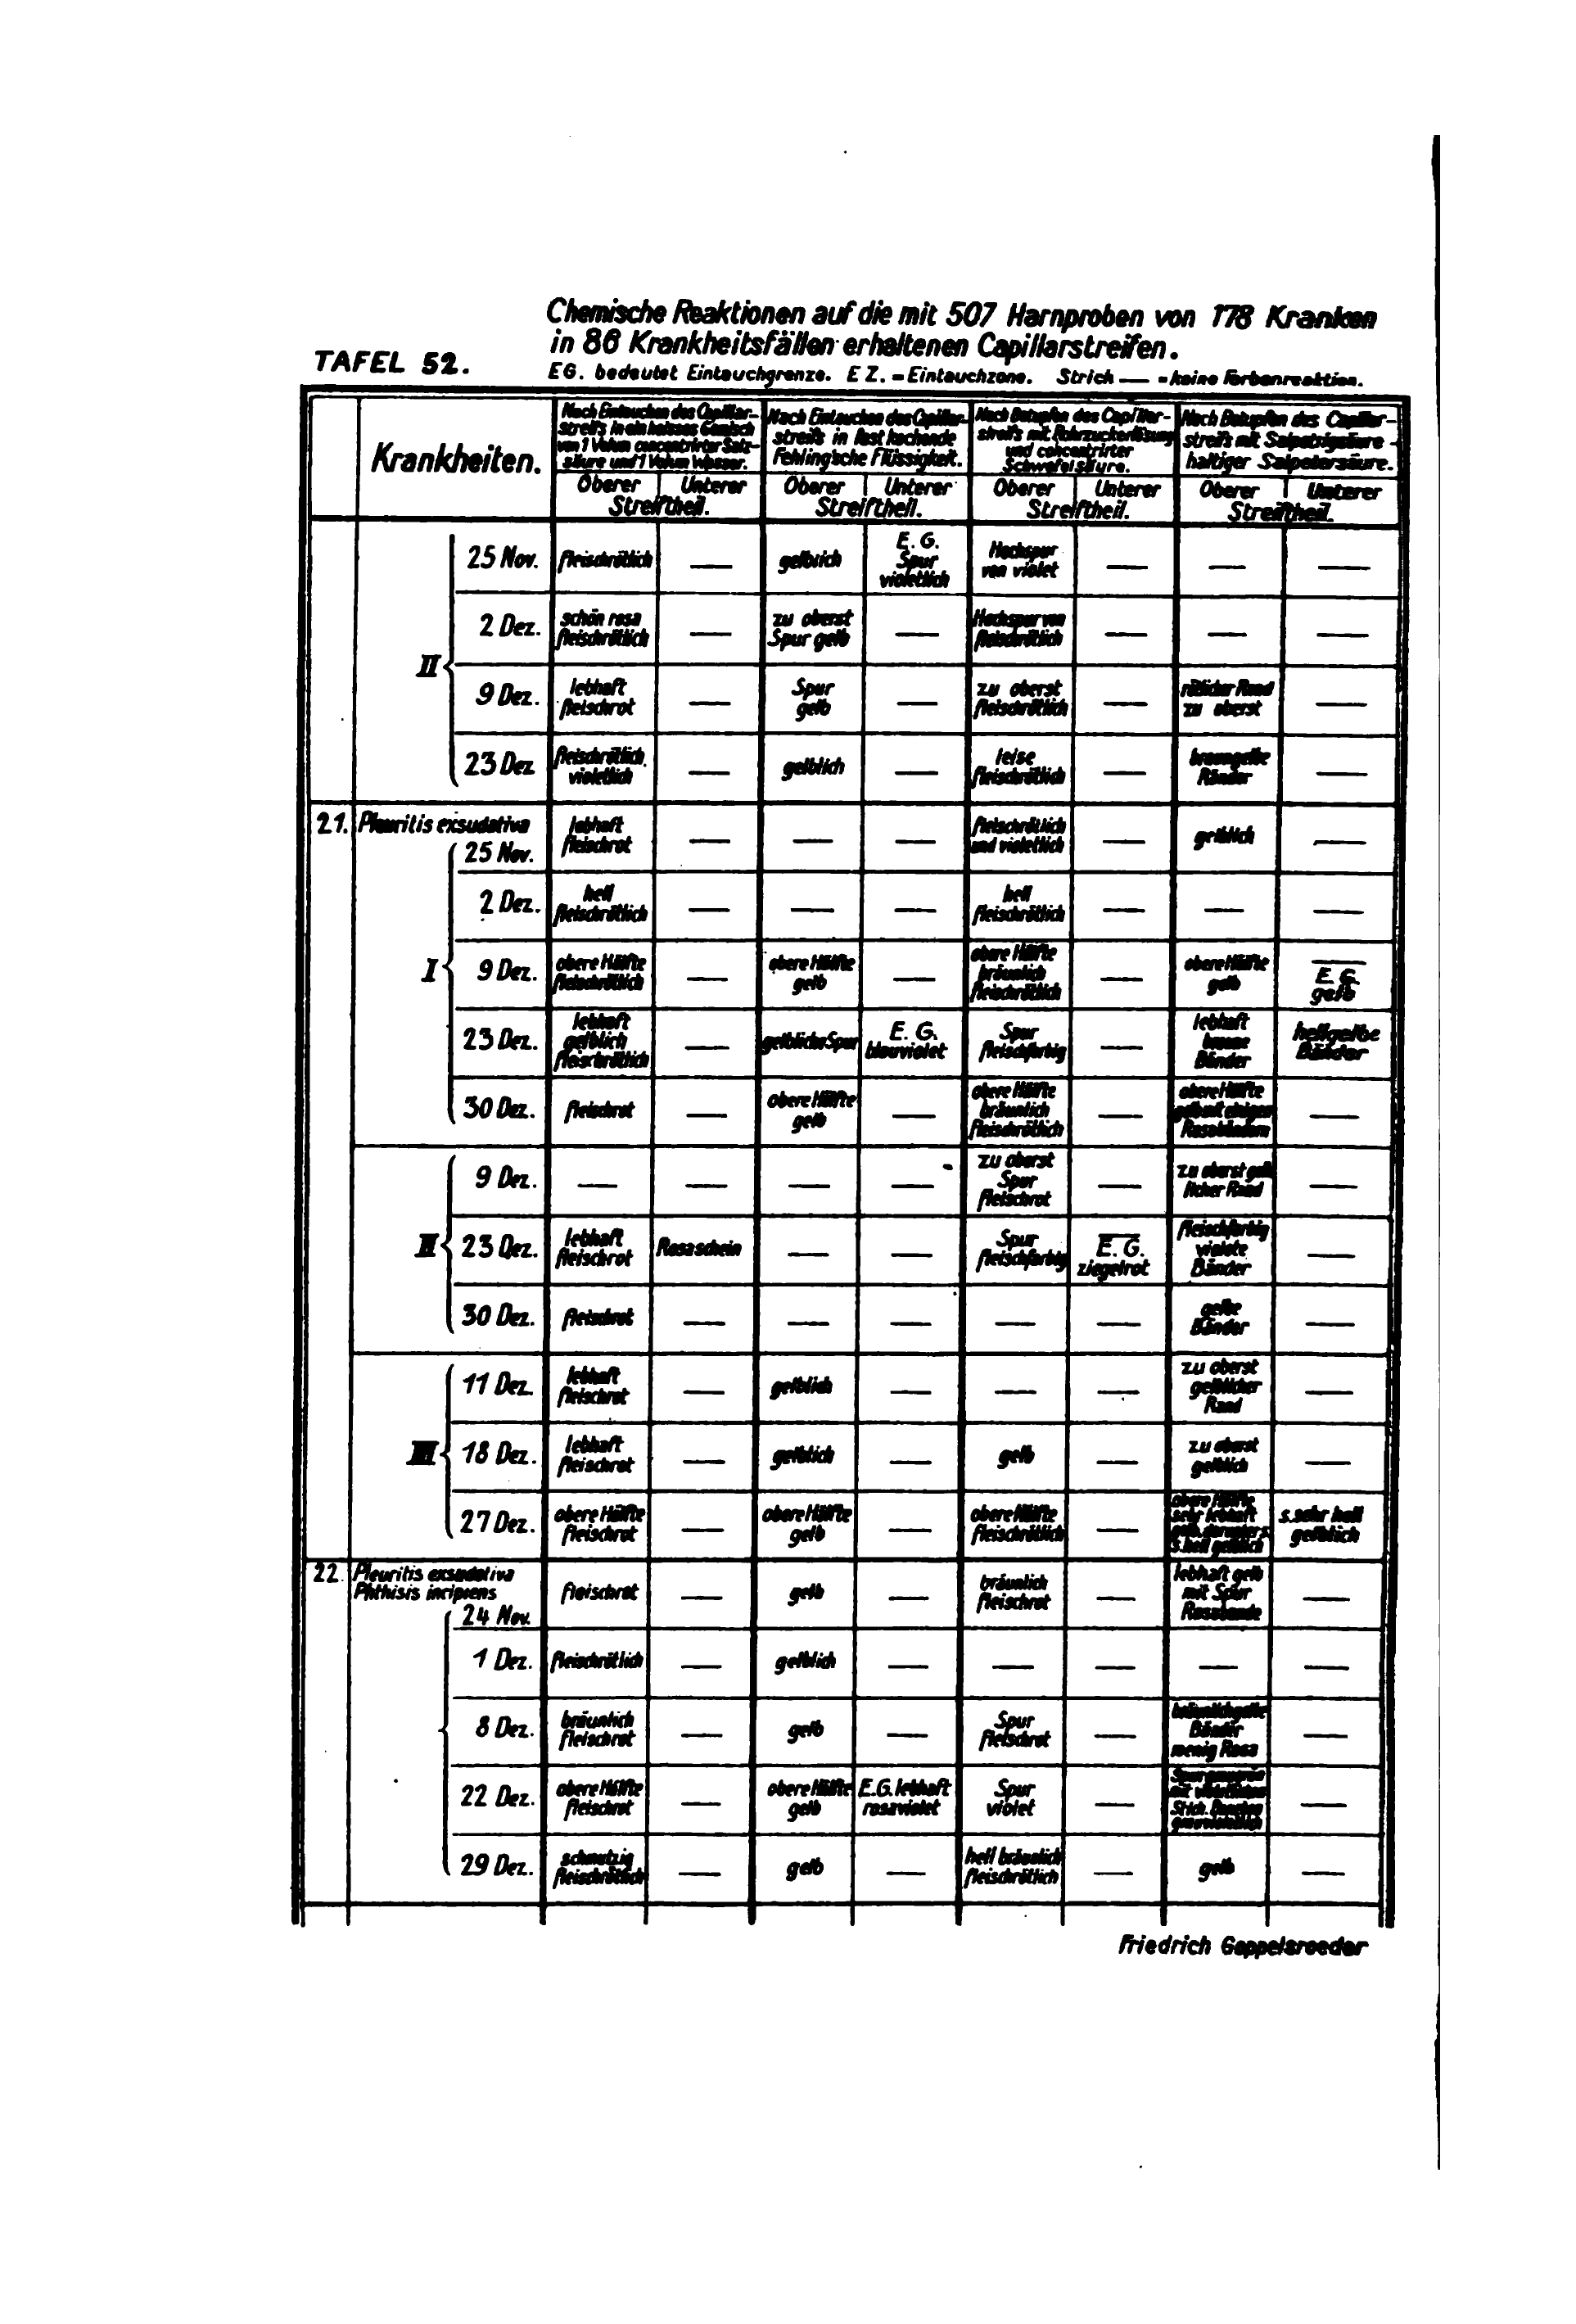 Chemische Reaktionen auf die mit 507 Harnproben von 178 Kranken
in 86 Krankheitsfällen erhaltenen Capillarstreifen.
TAFEL 52.
EG. bedeutet Eintauchgrenze. E Z. = Eintauchzone. Strich — = keine Farbenreaktion.
Krankheiten.
Nach Eintauchen des Capillar-
streifs in ein heisses Gemisch
von 1 Volum concentrirter Salz-
säure und 1 Volum Wasser.
Nach Eintauchen des Capillar-
streifs in fast kochende
Fehling'sche Flüssigkeit.
Nach Betupfen des Capillar-
streifs mit Rohrzuckerlösung
und concentrirter
Schwefelsäure.
Nach Betupfen des Capillar-
streifs mit Salpetrigsäure-
haltiger Salpetersäure.
Oberer Unterer Oberer Unterer Oberer Unterer Oberer Unterer
Streiftheil. Streiftheil. Streiftheil. Streiftheil.
II
25 Nov. fleischrötlich — gelblich E. G. Spur violetlich Hochspur von violet — — —
2 Dez. schön rosa fleischrötlich — zu oberst Spur gelb — Hochspur von fleischrötlich — — —
9 Dez. lebhaft fleischrot — Spur gelb — zu oberst fleischrötlich — rötlicher Rand zu oberst —
23 Dez fleischrötlich violetlich — gelblich — leise fleischrötlich — braungelbe Ränder —
21. Pleuritis exsudativa
I
25 Nov. lebhaft fleischrot — — — fleischrötlich und violetlich — gelblich —
2 Dez. hell fleischrötlich — — — hell fleischrötlich — — —
9 Dez. obere Hälfte fleischrötlich — obere Hälfte gelb — obere Hälfte bräunlich fleischrötlich — obere Hälfte gelb — E. G. gelb
23 Dez. lebhaft gelblich fleischrötlich — gelbliche Spur E. G. blauviolet Spur fleischfarbig — lebhaft braune Bänder hellgelbe Bänder
30 Dez. fleischrot — obere Hälfte gelb — obere Hälfte bräunlich fleischrötlich — obere Hälfte gelb mit einigen Rosabändern —
II
9 Dez. — — — — zu oberst Spur fleischrot — zu oberst gelblicher Rand —
23 Dez. lebhaft fleischrot Rosaschein — — Spur fleischfarbig — E. G. ziegelrot fleischfarbig violete Bänder —
30 Dez. fleischrot — — — — — gelbe Bänder —
III
11 Dez. lebhaft fleischrot — gelblich — — — zu oberst gelblicher Rand —
18 Dez. lebhaft fleischrot — gelblich — gelb — zu oberst gelblich —
27 Dez. obere Hälfte fleischrot — obere Hälfte gelb — obere Hälfte fleischrötlich — obere Hälfte sehr lebhaft gelb, darunter s. s. hell gelblich s. sehr hell gelblich
22 Pleuritis exsudativa
Phthisis incipiens
24 Nov. fleischrot — gelb — bräunlich fleischrot — lebhaft gelb mit Spur Rosabande —
1 Dez. fleischrötlich — gelblich — — — — —
8 Dez. bräunlich fleischrot — gelb — Spur fleischrot — bräunlichgelbe Bänder wenig Rosa —
22 Dez. obere Hälfte fleischrot — obere Hälfte gelb E.G. lebhaft rosaviolet Spur violet — Spur mit Strich. —
29 Dez. schmutzig fleischrötlich — gelb — hell bräunlich fleischrötlich — gelb —
Friedrich Goppelsroeder